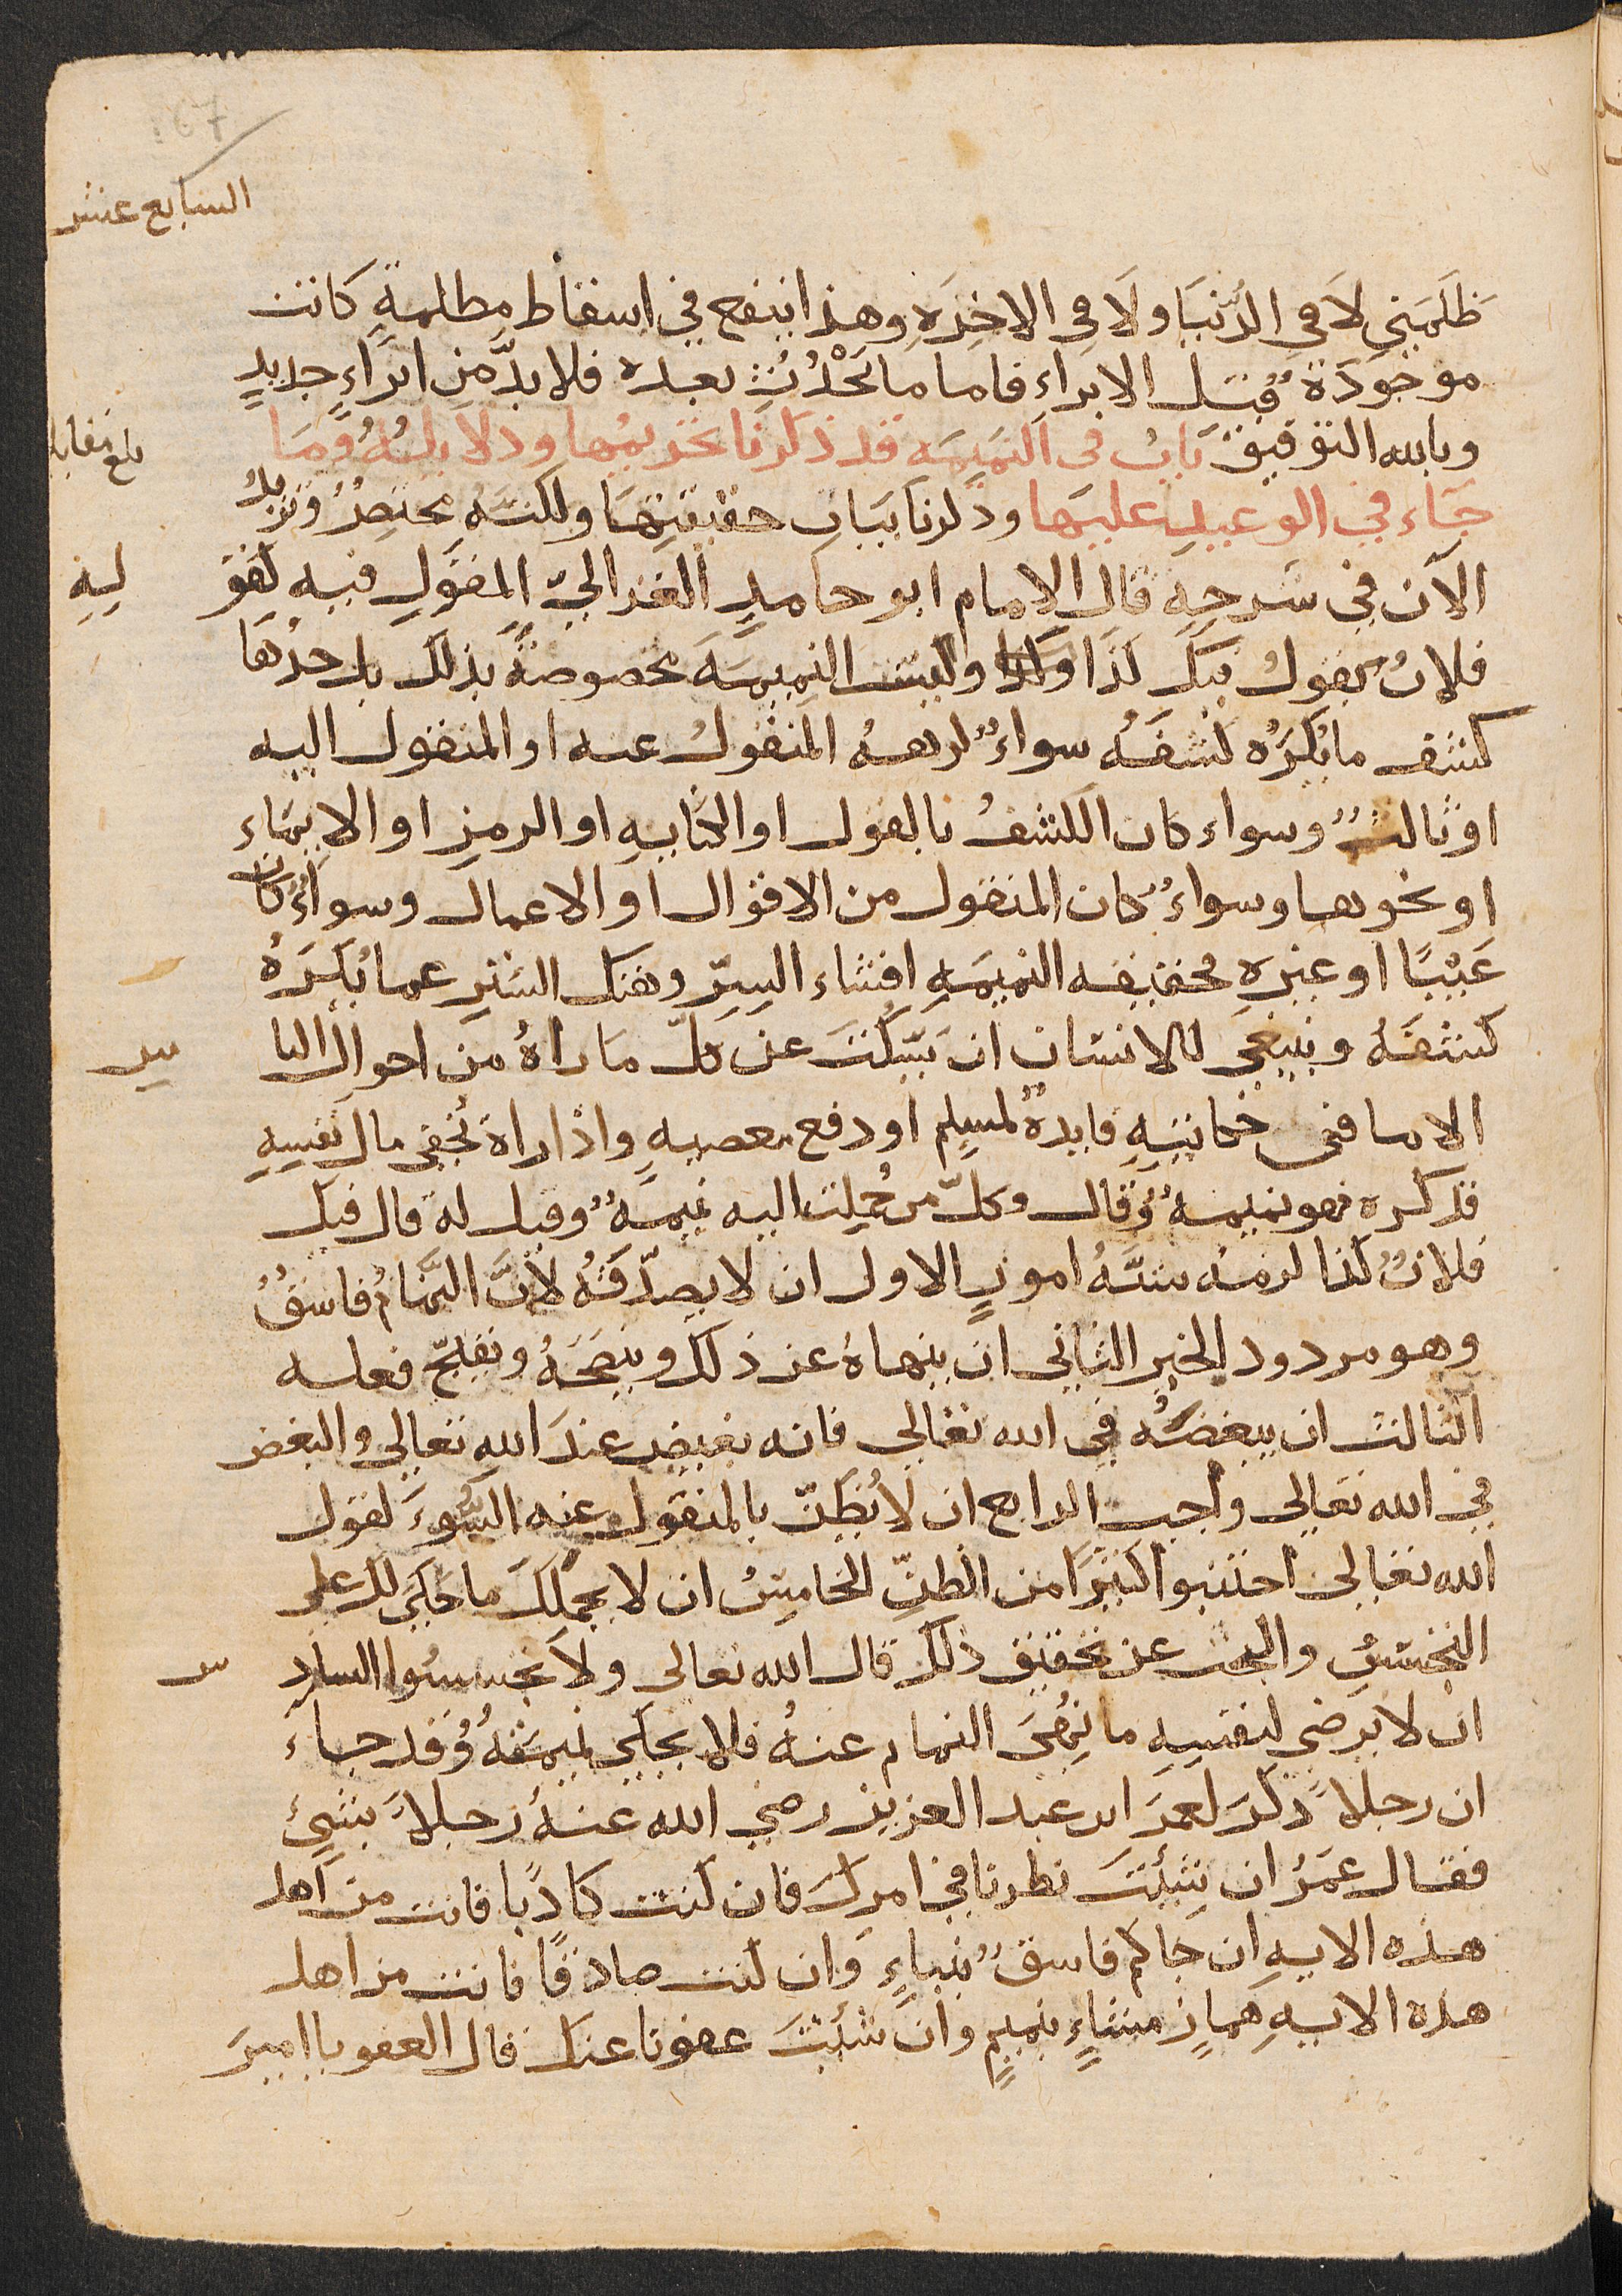 67
السابع عشر
ظَلَمَني لاَ في الدُّنيَا ولاَ في الاخِرَه وهذا ينفع في اسقاط مظلمةٍ كانت
موجودَة قبل الابراءِ فاما ما يَحْدُث بعده فلا بدَّ من ابرَاءٍ جديدٍ
وبالله التوفيق بَابُ في النميمَه قد ذكرنا تحريمُها ودلايلُهُ وَمَا
بلغ مقابله
جَاء في الوعيدِ عليهَا وذكرنا بيَان حقيقتِهَا ولكنَّه مختصرٌ ونزيدُ
الآن في شرحِهِ قال الإمام ابو حامدٍ الغزاليّ المقول فيه لقو
ليهِ
فلانٌ يقولُ فيكَ كَذَا وليست النميمَة مخصوصةً بذلك بل حدُهَا
كشف ما يُكرَهُ كشفهُ سواءٌ كرههُ المنقولُ عنه او المنقول اليه
او ثالثٌ وسواء كان الكشفُ بالقول او الكتابهِ او الرمزِ او الايمَاء
او نحوها وسواءٌ كان المنقول من الاقوال او الاعمال وسواءٌ كان
عَيْبًا او غيره فحقيقه النميمَهِ افشاء السِرّ وهتك السَترِ عما يُكرَهُ
كشفَهُ وينبغي للانسان ان يَسكتَ عن كلّ ما راهُ من احوال النا
س
الا ما في حكايتِهِ فايدهٌ لمسلِمٍ او دفع معصيهٍ واذا راهُ يُخفي مال نفسِهِ
فذكره فهو نميمهٌ وقال وكلّ من حُمِلت اليه نميمَهٌ وقيل له قال فيك
فلانٌ كذا لزمهُ ستَّهُ امورٍ الاول ان لا يصدّقَهُ لأنَّ النمَّامُ فاسقٌ
وهو مردود الخبرِ الثاني ان ينهاهُ عن ذلك وينصَحَهُ ويقبّح فعله
الثالث ان يبغضَهُ في الله تعالى فانه بغيض عندَ الله تعالى والبغض
في الله تعالى واجب الرابع ان لا يُظنّ بالمنقول عنه السُّوءَ لقول
الله تعالى اجتنبوا كثيرًا من الظنِّ الخامِسُ ان لا يحملكَ ما حُكيَ لك على
التجسّسِ والبحث عن تحقيق ذلك قال الله تعالى ولا تجسسُوا الساد
س
ان لا يرضى لنفسِهِ ما نُهيَ النمام عنهُ فلا يحكي نميمَتَهُ وقد جاءَ
ان رجلاً ذكرَ لعمرَ ابن عبد العزيز رضي الله عنهُ رجلاً بشيءٍ
فقال عمَرُ ان شِئْتَ نظرنا في امرك فان كنت كاذبًا فانت من اهل
هذه الايهِ ان جاكم فاسقٌ بنباءٍ وان كنت صادقًا فانت من اهل
هذه الايهِ همازٍ مشاءٍ بنميمٍ وان شئتَ عفونا عنك قال العفو يا اميرَ